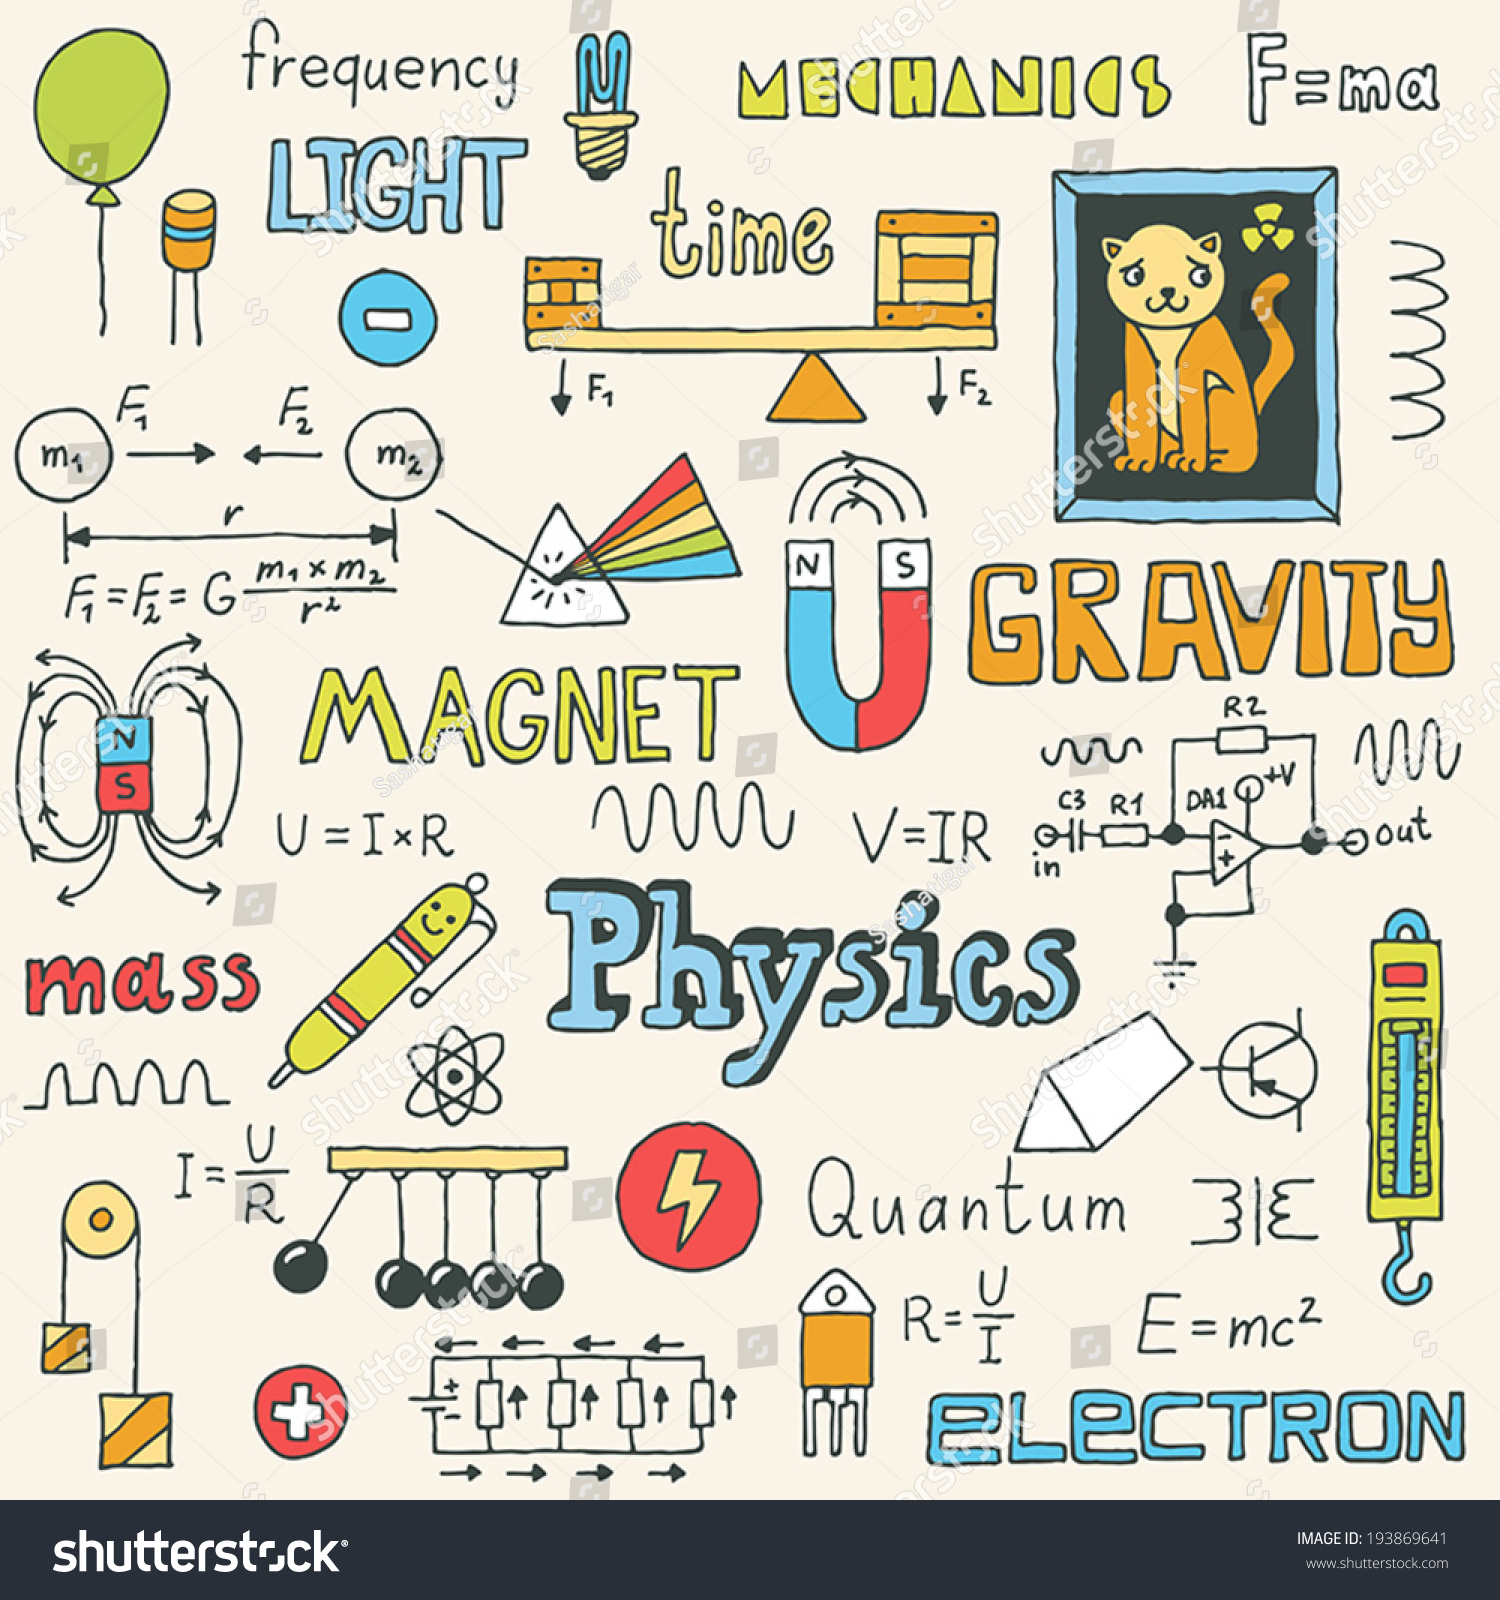 frequency
MECHANICS
F=ma
LIGHT
time
F₁
F₂
F₁
F₂
m₁
m₂
r
F₁=F₂=G m₁×m₂/r²
N
S
GRAVITY
MAGNET
N
S
R2
C3
R1
DA1
+V
in
out
U=I×R
V=IR
Physics
mass
I=U/R
Quantum
R=U/I
E=mc²
ELECTRON
shutterstock
IMAGE ID: 193869641
www.shutterstock.com
Sashatigar
Sashatigar
Sashatigar